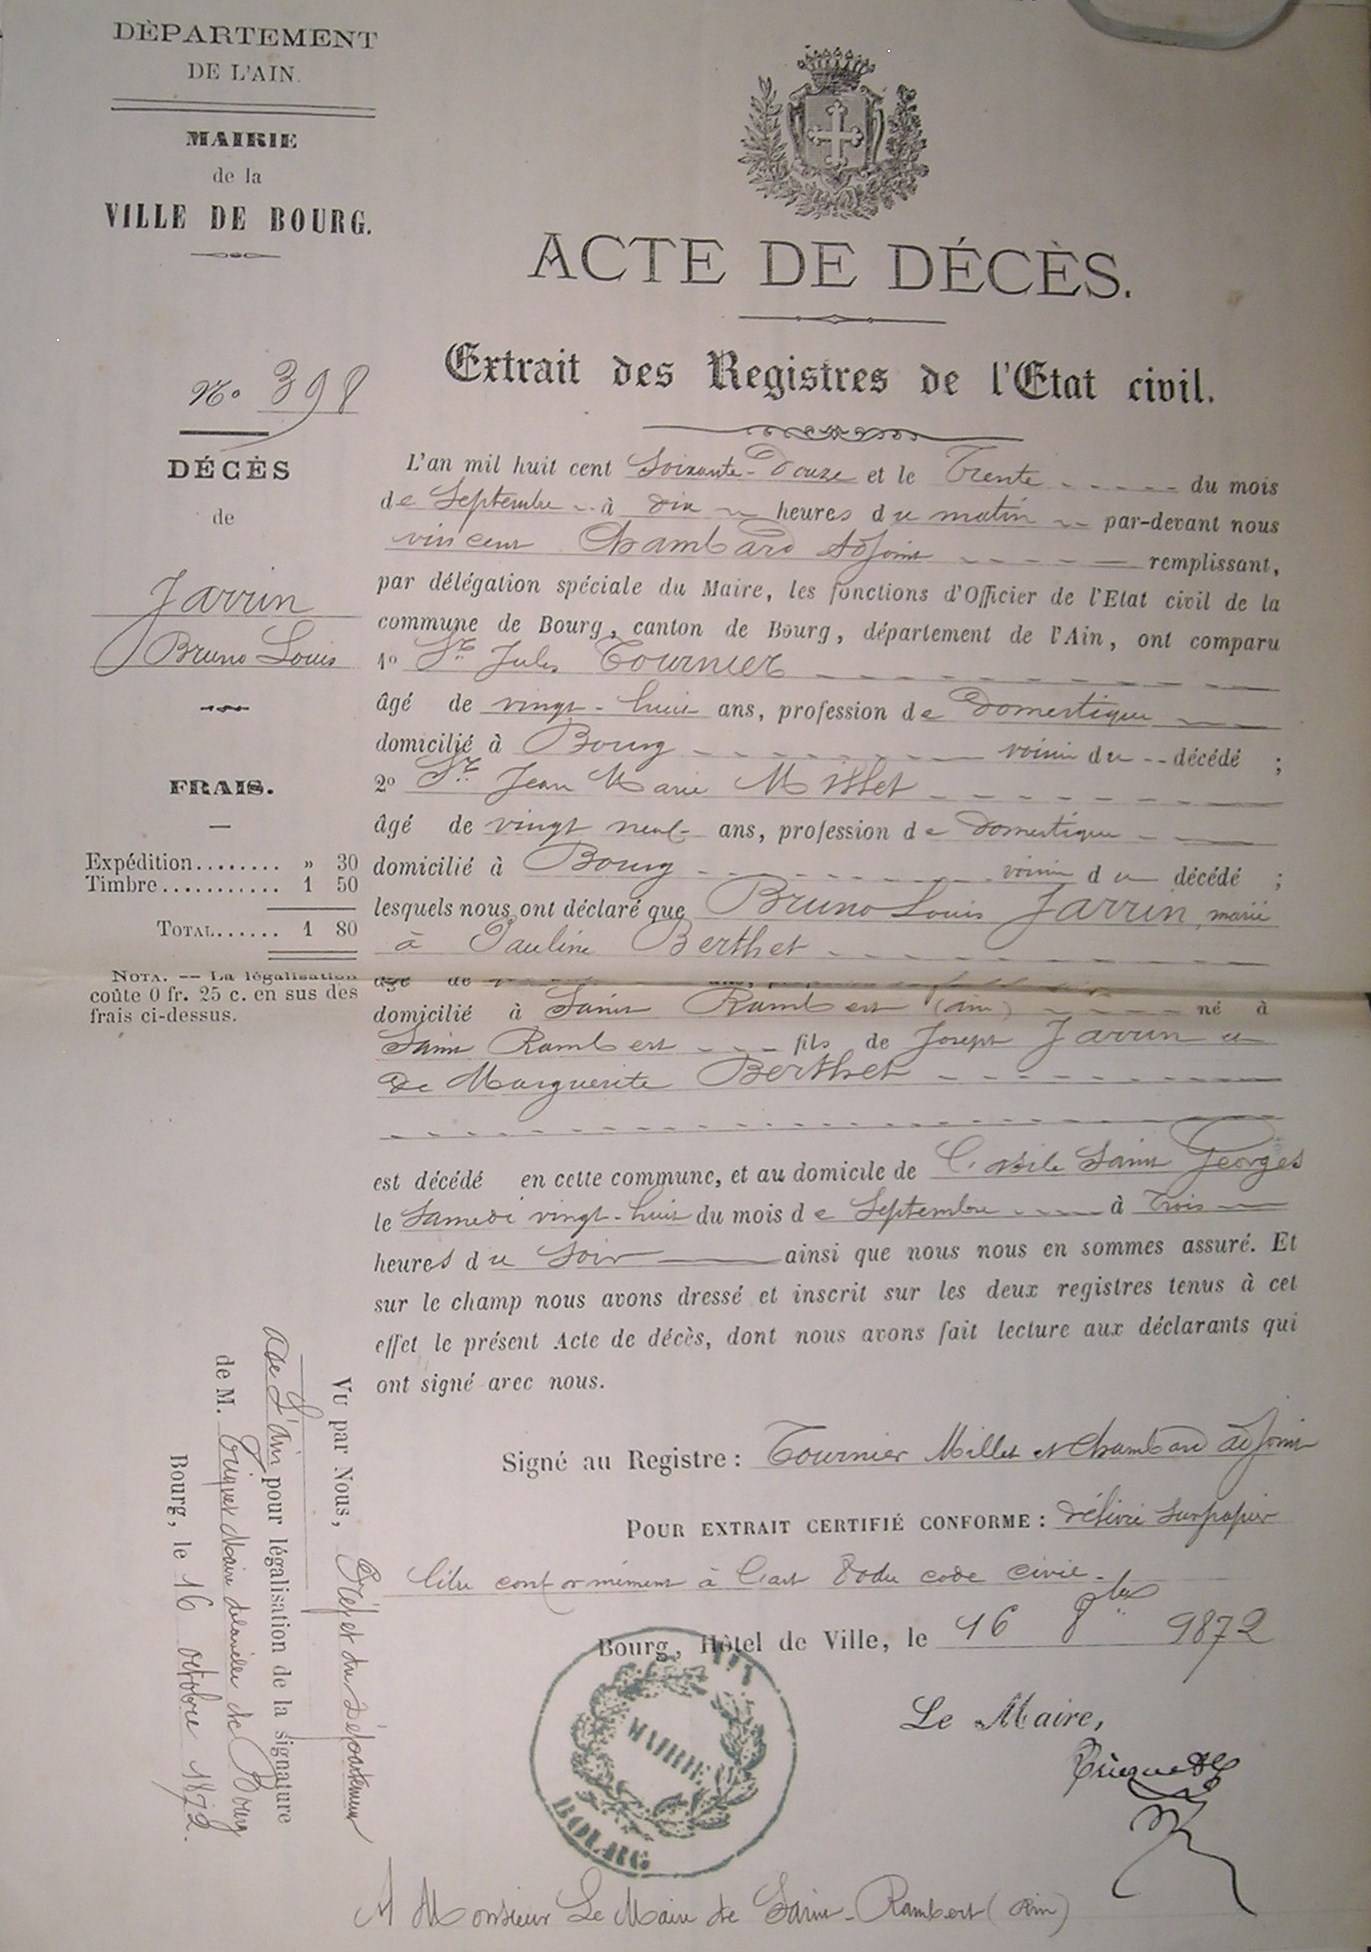 DÉPARTEMENT
DE L'AIN.
MAIRIE
de la
VILLE DE BOURG.
ACTE DE DÉCÈS.
Extrait des Registres de l'Etat civil.
No. 398
DÉCÈS
de
Jarrin
Bruno Louis
FRAIS.
Expédition........ » 30
Timbre........... 1 50
TOTAL...... 1 80
NOTA. -- La légalisation
coûte 0 fr. 25 c. en sus des
frais ci-dessus.
L'an mil huit cent Soixante-Douze et le Trente du mois
de Septembre à dix heures du matin par-devant nous
vincent Chambard Adjoint remplissant,
par délégation spéciale du Maire, les fonctions d'Officier de l'Etat civil de la
commune de Bourg, canton de Bourg, département de l'Ain, ont comparu
1o Sr. Jules Tournier
âgé de vingt-huit ans, profession de Domestique
domicilié à Bourg voisin du décédé ;
2o Sr. Jean Marie Millet
âgé de vingt neuf ans, profession de Domestique
domicilié à Bourg voisin du décédé ;
lesquels nous ont déclaré que Bruno Louis Jarrin, marié
à Pauline Berthet
âgé de
domicilié à Saint Rambert (ain) né à
Saint Rambert fils de Joseph Jarrin et
De Marguerite Berthet
est décédé en cette commune, et au domicile de L'asile Saint Georges
le Samedi vingt-huit du mois de Septembre à Trois
heures du Soir ainsi que nous nous en sommes assuré. Et
sur le champ nous avons dressé et inscrit sur les deux registres tenus à cet
effet le présent Acte de décès, dont nous avons fait lecture aux déclarants qui
ont signé avec nous.
Signé au Registre : Tournier Millet et Chambard adjoint
POUR EXTRAIT CERTIFIÉ CONFORME : Délivré sur papier
libre conformément à l'art 80 du code civil.
Bourg, Hôtel de Ville, le 16 8bre 1872
Le Maire,
MAIRIE
BOURG
A Monsieur Le Maire de Saint-Rambert (Ain)
Vu par Nous, Préfet du Département
de l'Ain pour légalisation de la signature
de M. Maire de la ville de Bourg
Bourg, le 16 octobre 1872.